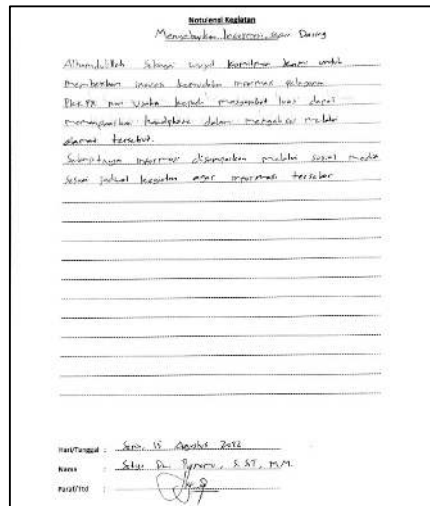 Notulensi Kegiatan
Menyebarkan Informasi secara Daring
Alhamdulillah Sebagai wujud komitmen kami untuk
memberikan inovasi kemudahan informasi
dan Usaha kepada masyarakat luas dapat
memanfaatkan handphone dalam mengakses melalui
alamat tersebut.
Selanjutnya informasi disampaikan melalui sosial media
sesuai jadwal kegiatan agar informasi tersebar
Hari/Tanggal : Senin, 15 Agustus 2022
Nama : S.ST, M.M.
Paraf/Ttd :